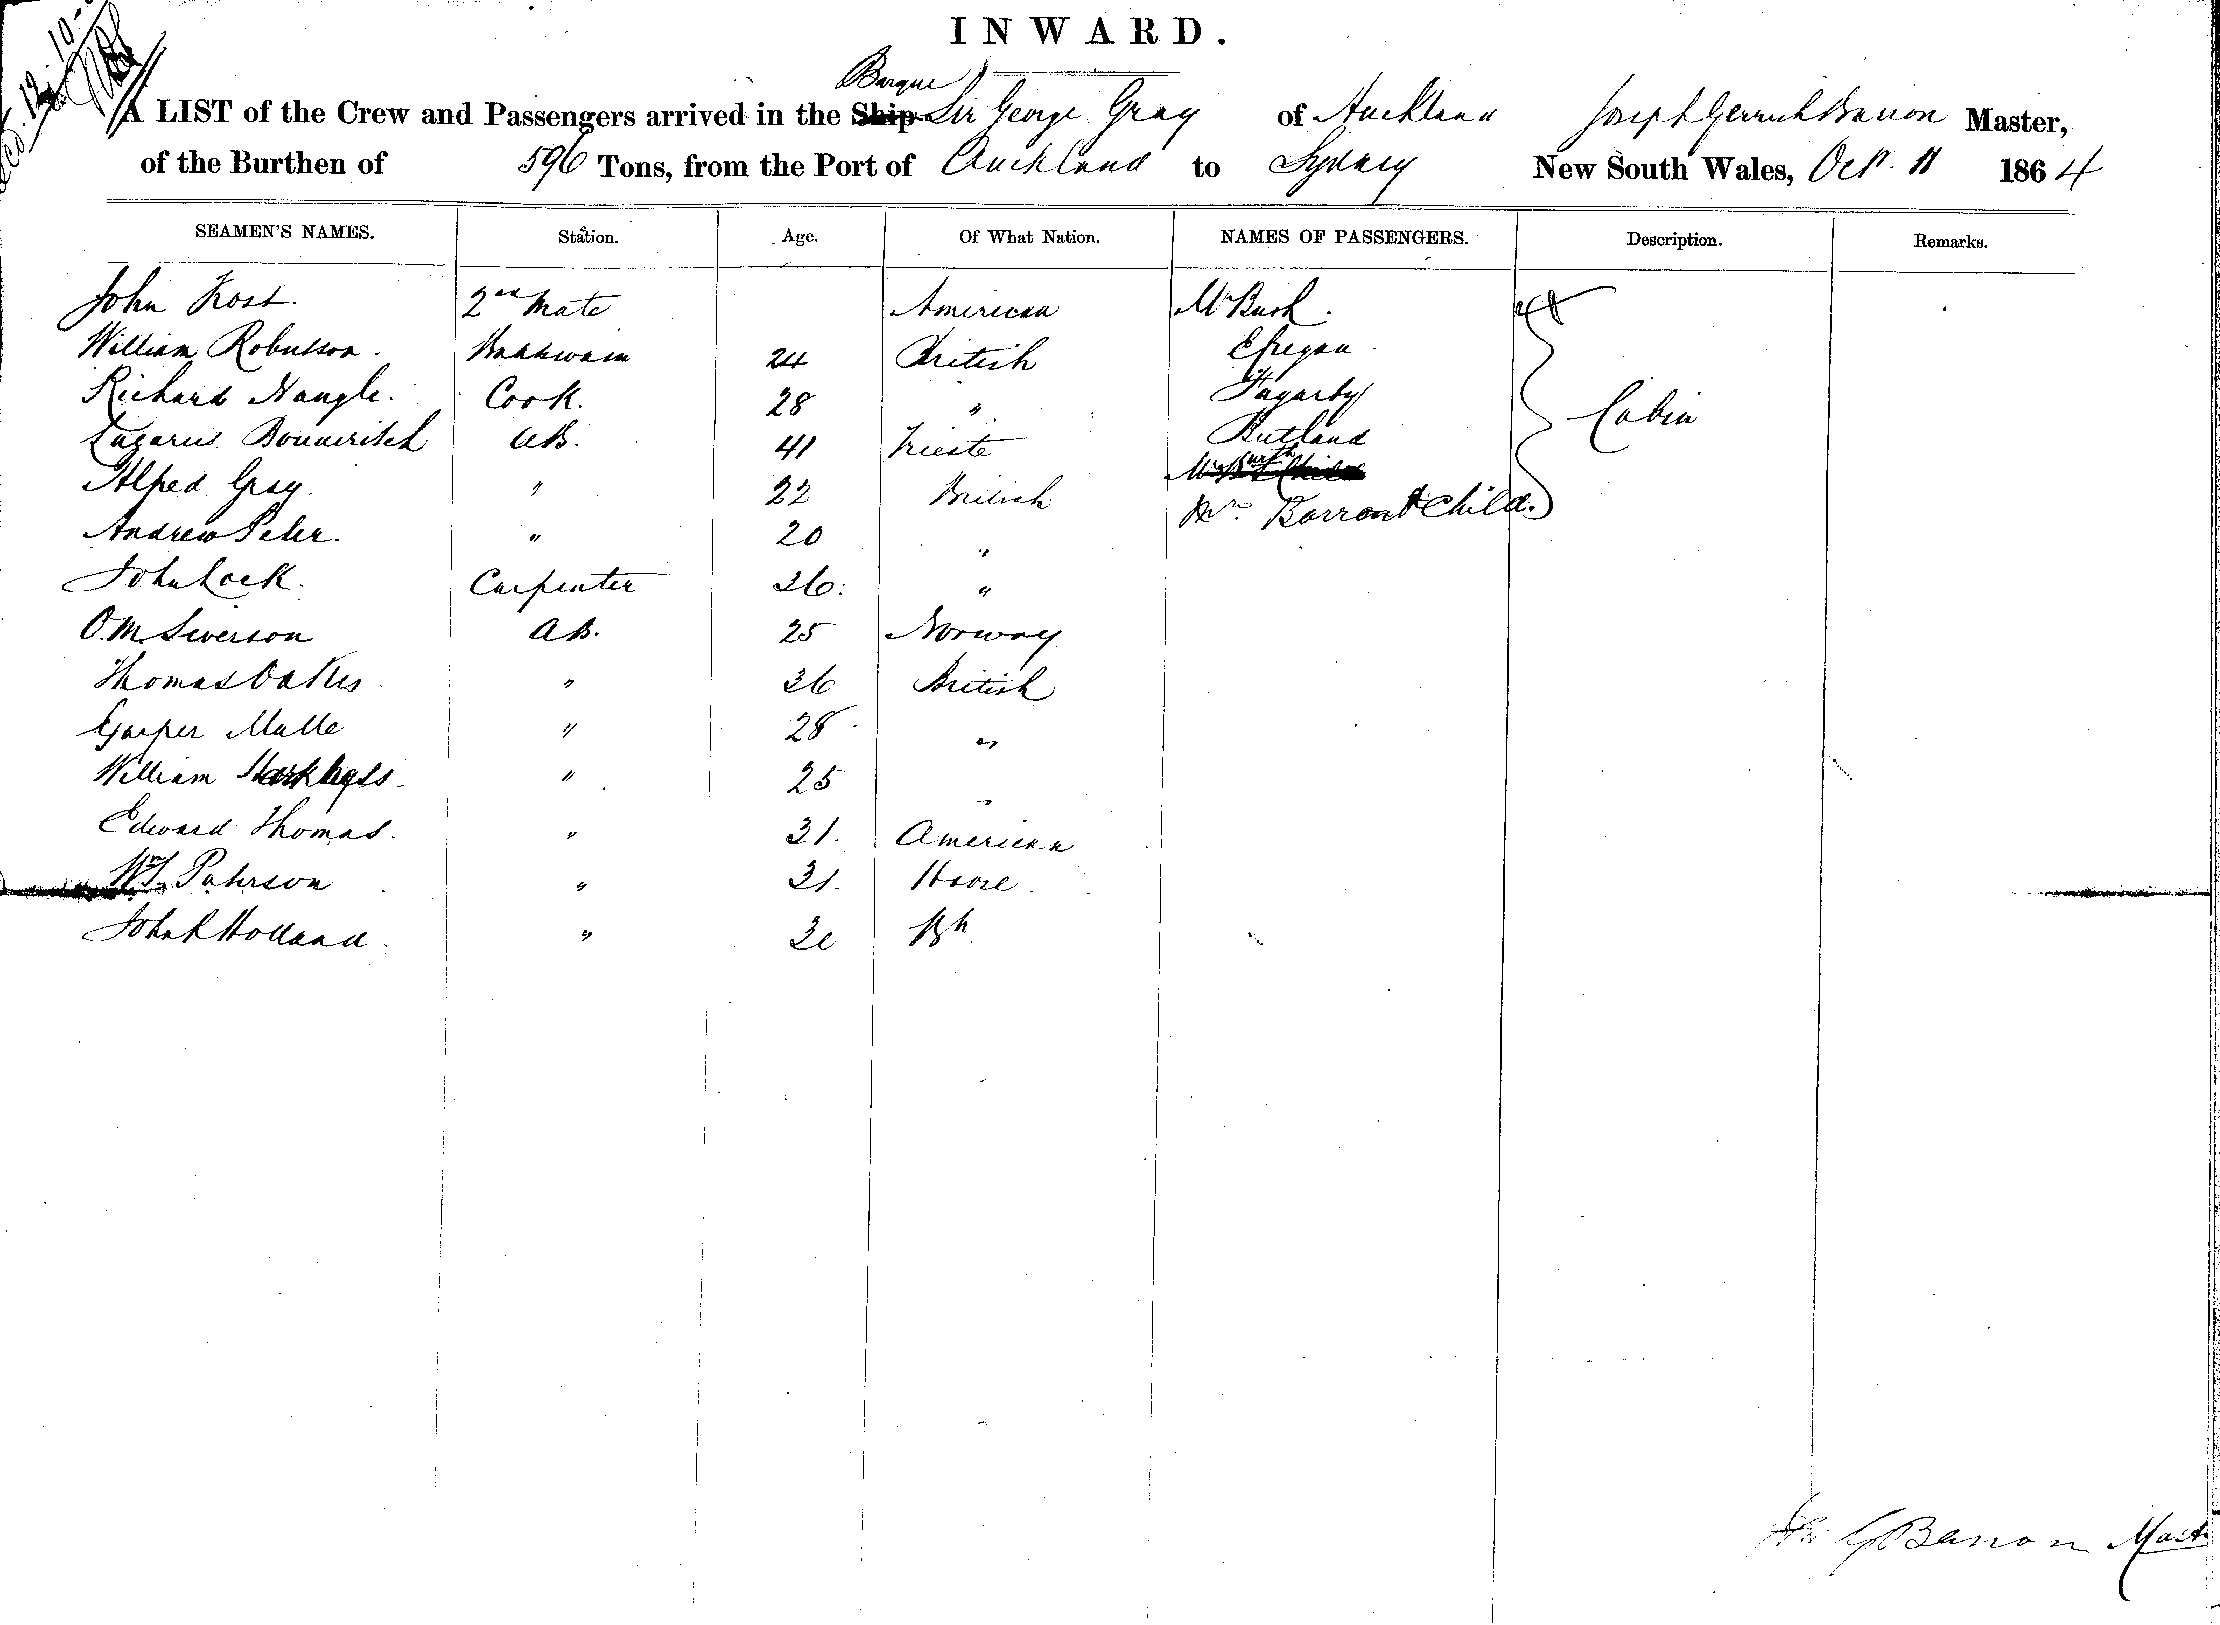 INWARD.
Barque
A LIST of the Crew and Passengers arrived in the Ship Sir George Gray of Auckland Joseph Gerrish Barron Master,
of the Burthen of 596 Tons, from the Port of Auckland to Sydney New South Wales, Oct. 11 1864
SEAMEN'S NAMES. Station. Age. Of What Nation. NAMES OF PASSENGERS. Description. Remarks.
John Frost. 2nd Mate American Mr Bush.
William Robertson. 24 British
Richard Nangle. Cook. 28 " Fagarty
Lazarus AB. 41 Trieste Rutland Cabin
Alfred Gray " 22 British
Andrew Peter. " 20 " Mrs. Barron & Child.
John Lock. Carpenter 26. "
O. M. Siverson AB. 25 Norway
Thomas Oakes " 36 British
Gasper Malle " 28 "
William " 25 "
Edward Thomas. " 31. American
Wm Paterson " 31.
John Holland. " 30 Bh
G Barron Master